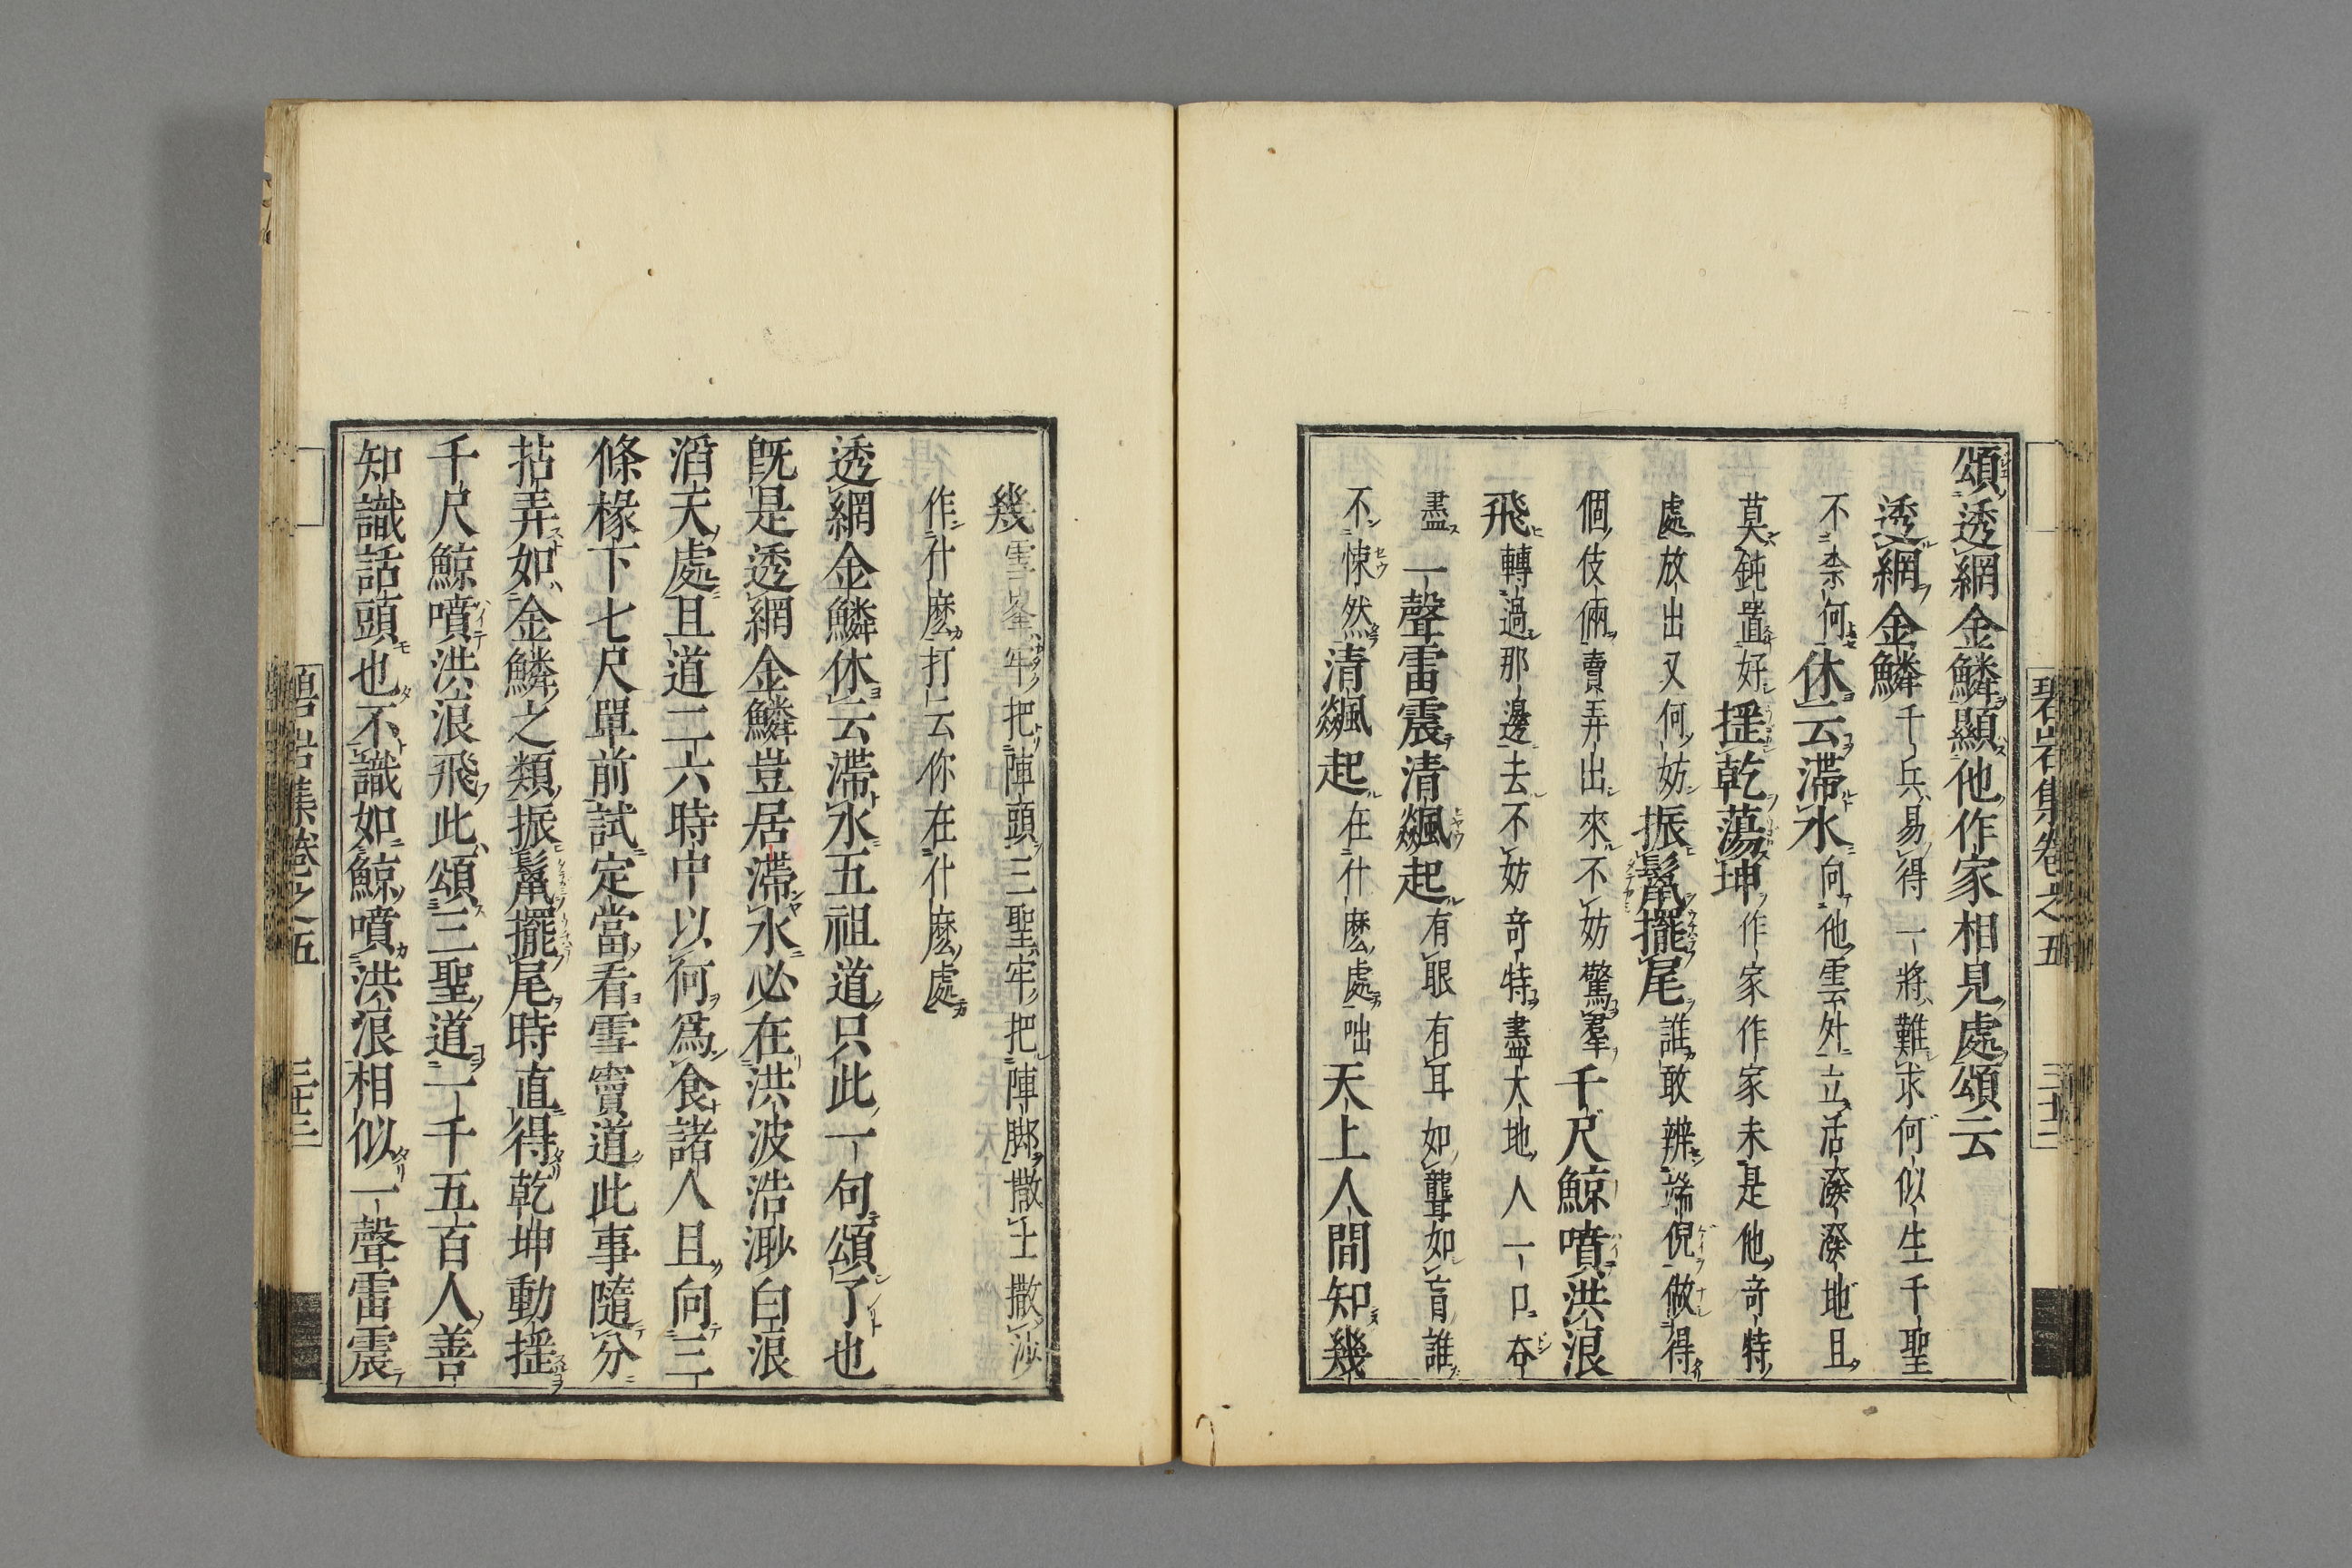 碧岩集卷之五
頌透網金鱗顯他作家相見處頌云
透網金鱗千兵易得一將難求何似生千聖
不柰何休云滯水向他雲外立活潑潑地且
莫鈍置好搖乾蕩坤作家作家未是他奇特
處放出又何妨振鬣擺尾誰敢辨端倪做得
個伎倆賣弄出來不妨驚羣千尺鯨噴洪浪
飛轉過那邊去不妨奇特盡大地人一口吞
盡一聲雷震清飇起有眼有耳如聾如盲誰
不悚然清飇起在什麽處咄天上人間知幾
幾雪峯牢把陣頭三聖牢把陣脚撒土撒沙
作什麽打云你在什麽處
透網金鱗休云滯水五祖道只此一句頌了也
旣是透網金鱗豈居滯水必在洪波浩渺白浪
滔天處且道二六時中以何爲食諸人且向三
條椽下七尺單前試定當看雪竇道此事隨分
拈弄如金鱗之類振鬣擺尾時直得乾坤動搖
千尺鯨噴洪浪飛此頌三聖道一千五百人善
知識話頭也不識如鯨噴洪浪相似一聲雷震
碧岩集卷之五